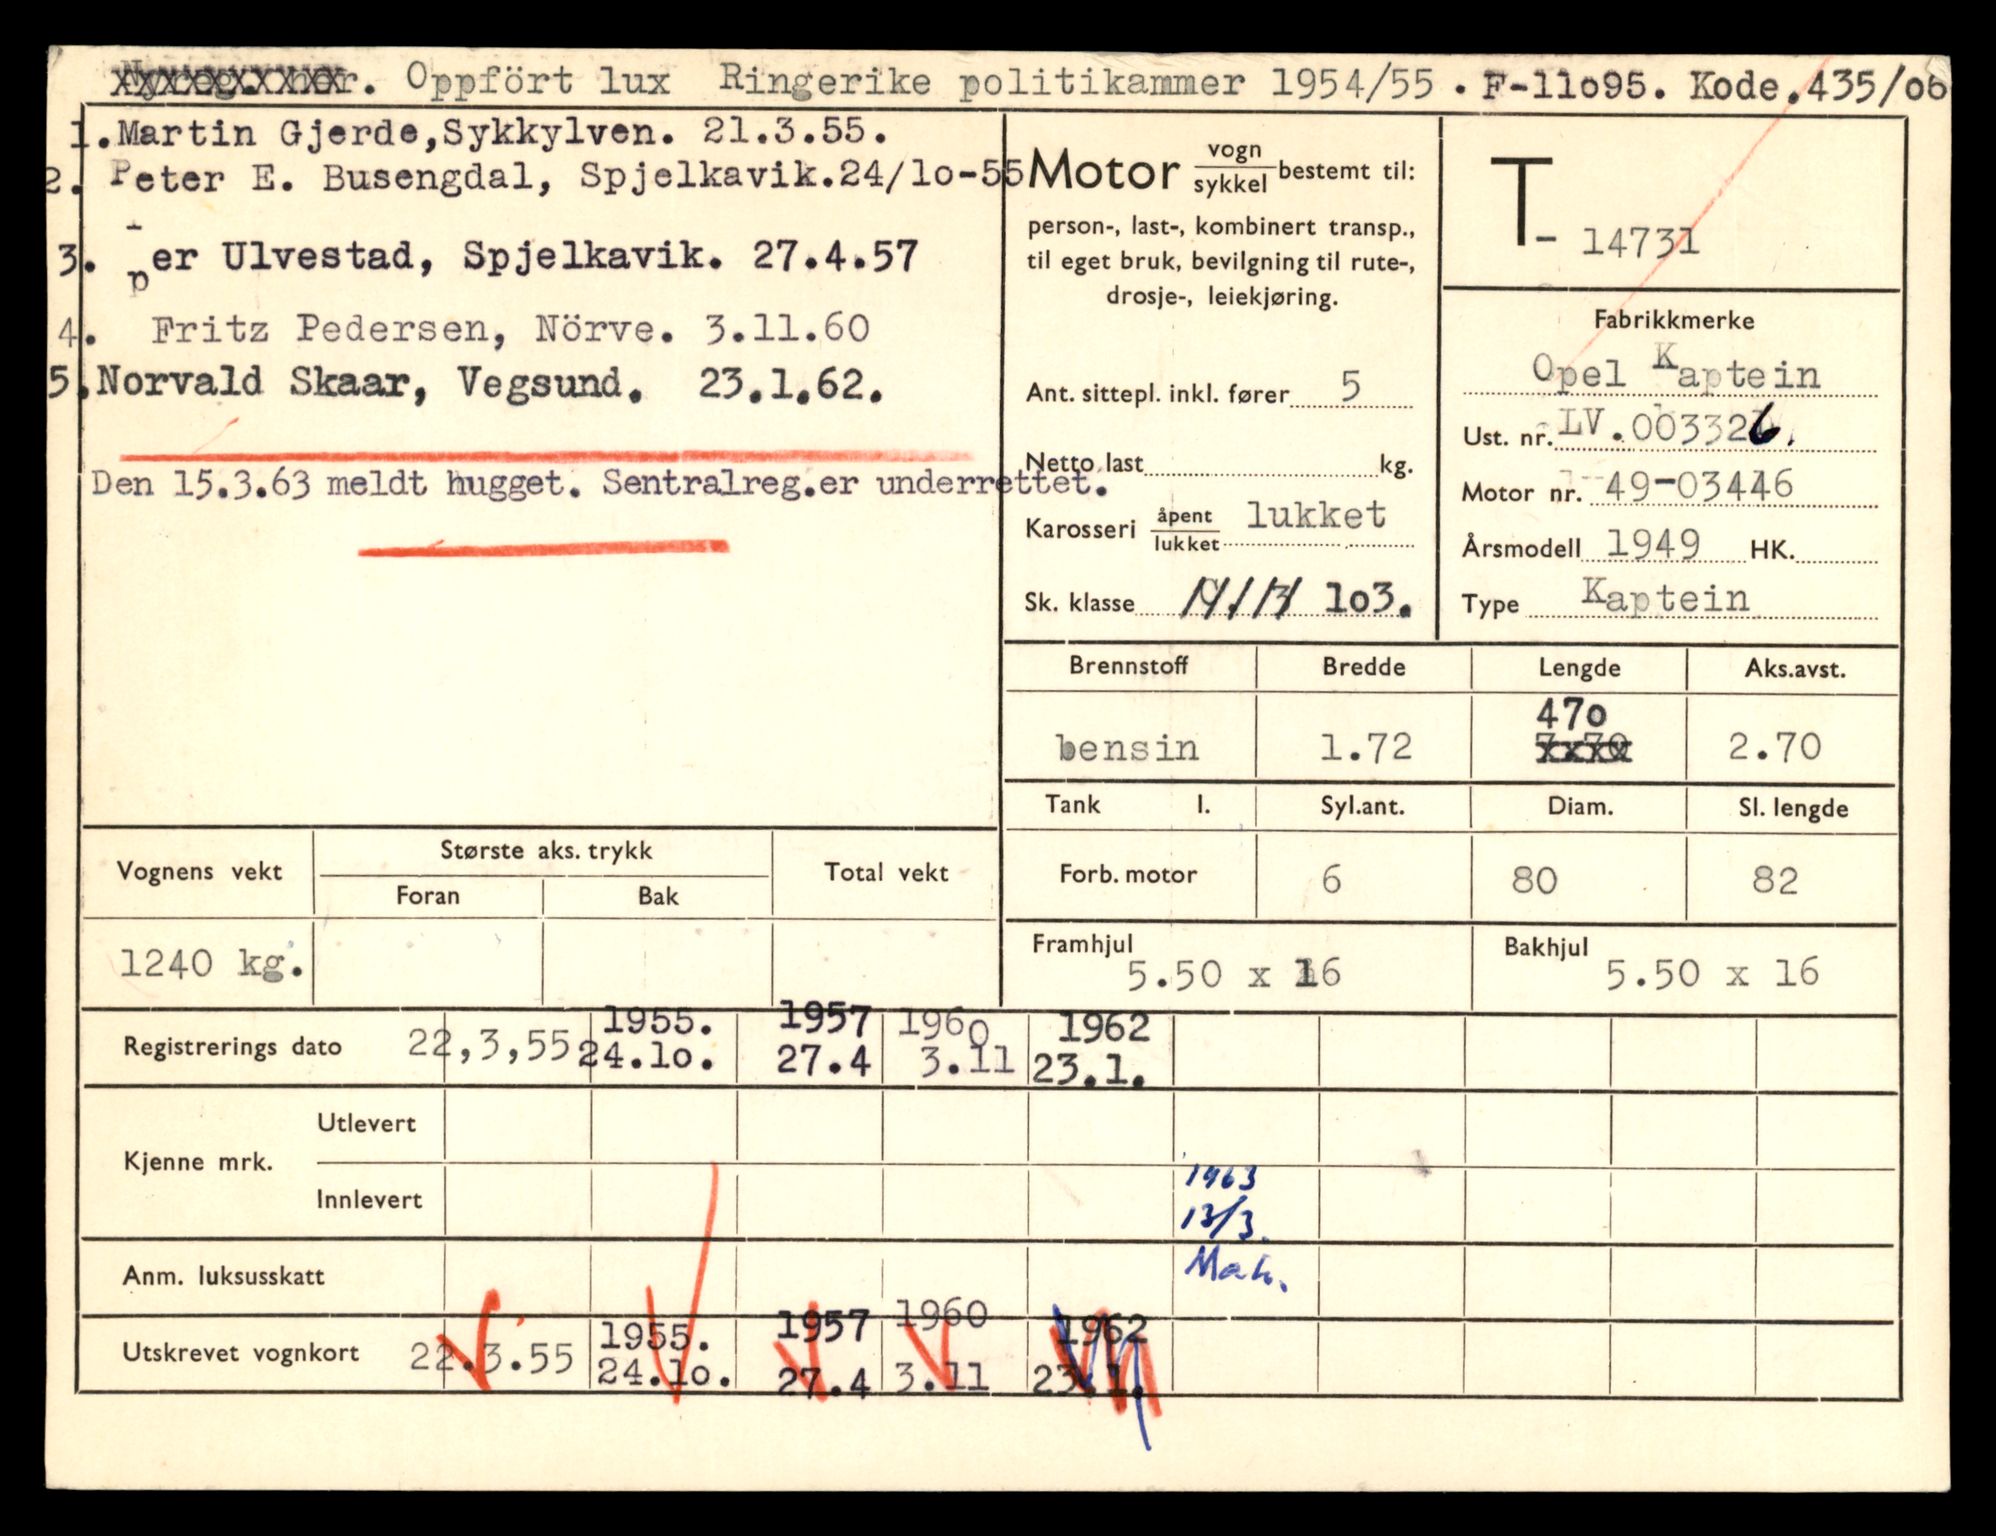 Oppfört lux Ringerike politikammer 1954/55. F-11o95. Kode.435/o6
1.Martin Gjerde,Sykkylven. 21.3.55.
2. Peter E. Busengdal, Spjelkavik.24/lo-55
3. per Ulvestad, Spjelkavik. 27.4.57
4. Fritz Pedersen, Nörve. 3.11.60
5.Norvald Skaar, Vegsund. 23.1.62.
Den 15.3.63 meldt hugget. Sentralreg.er underrettet.
Motor vogn/sykkel bestemt til:
person-, last-, kombinert transp.,
til eget bruk, bevilgning til rute-,
drosje-, leiekjøring.
Ant. sittepl. inkl. fører 5
Netto last kg.
Karosseri åpent/lukket lukket
Sk. klasse 1o3.
T- 14731
Fabrikkmerke
Opel Kaptein
Ust. nr. LV.003326.
Motor nr. 49-03446
Årsmodell 1949 HK.
Type Kaptein
Brennstoff Bredde Lengde Aks.avst.
47o
bensin 1.72 2.70
Tank l. Syl.ant. Diam. Sl. lengde
Forb. motor 6 80 82
Framhjul Bakhjul
5.50 x 16 5.50 x 16
Vognens vekt Største aks. trykk Total vekt
Foran Bak
1240 kg.
1955. 1957 1960 1962
Registrerings dato 22,3,55 24.lo. 27.4 3.11 23.1.
Utlevert
Kjenne mrk.
Innlevert
1963
13/3.
Mah.
Anm. luksusskatt
1955. 1957 1960 1962
Utskrevet vognkort 22.3.55 24.lo. 27.4 3.11 23.1.